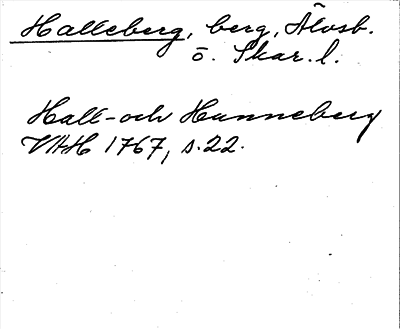 Halleberg, berg, Älvsb.
o. Skar. l.
Hall- och Hunneberg
VAH 1767, s. 22.